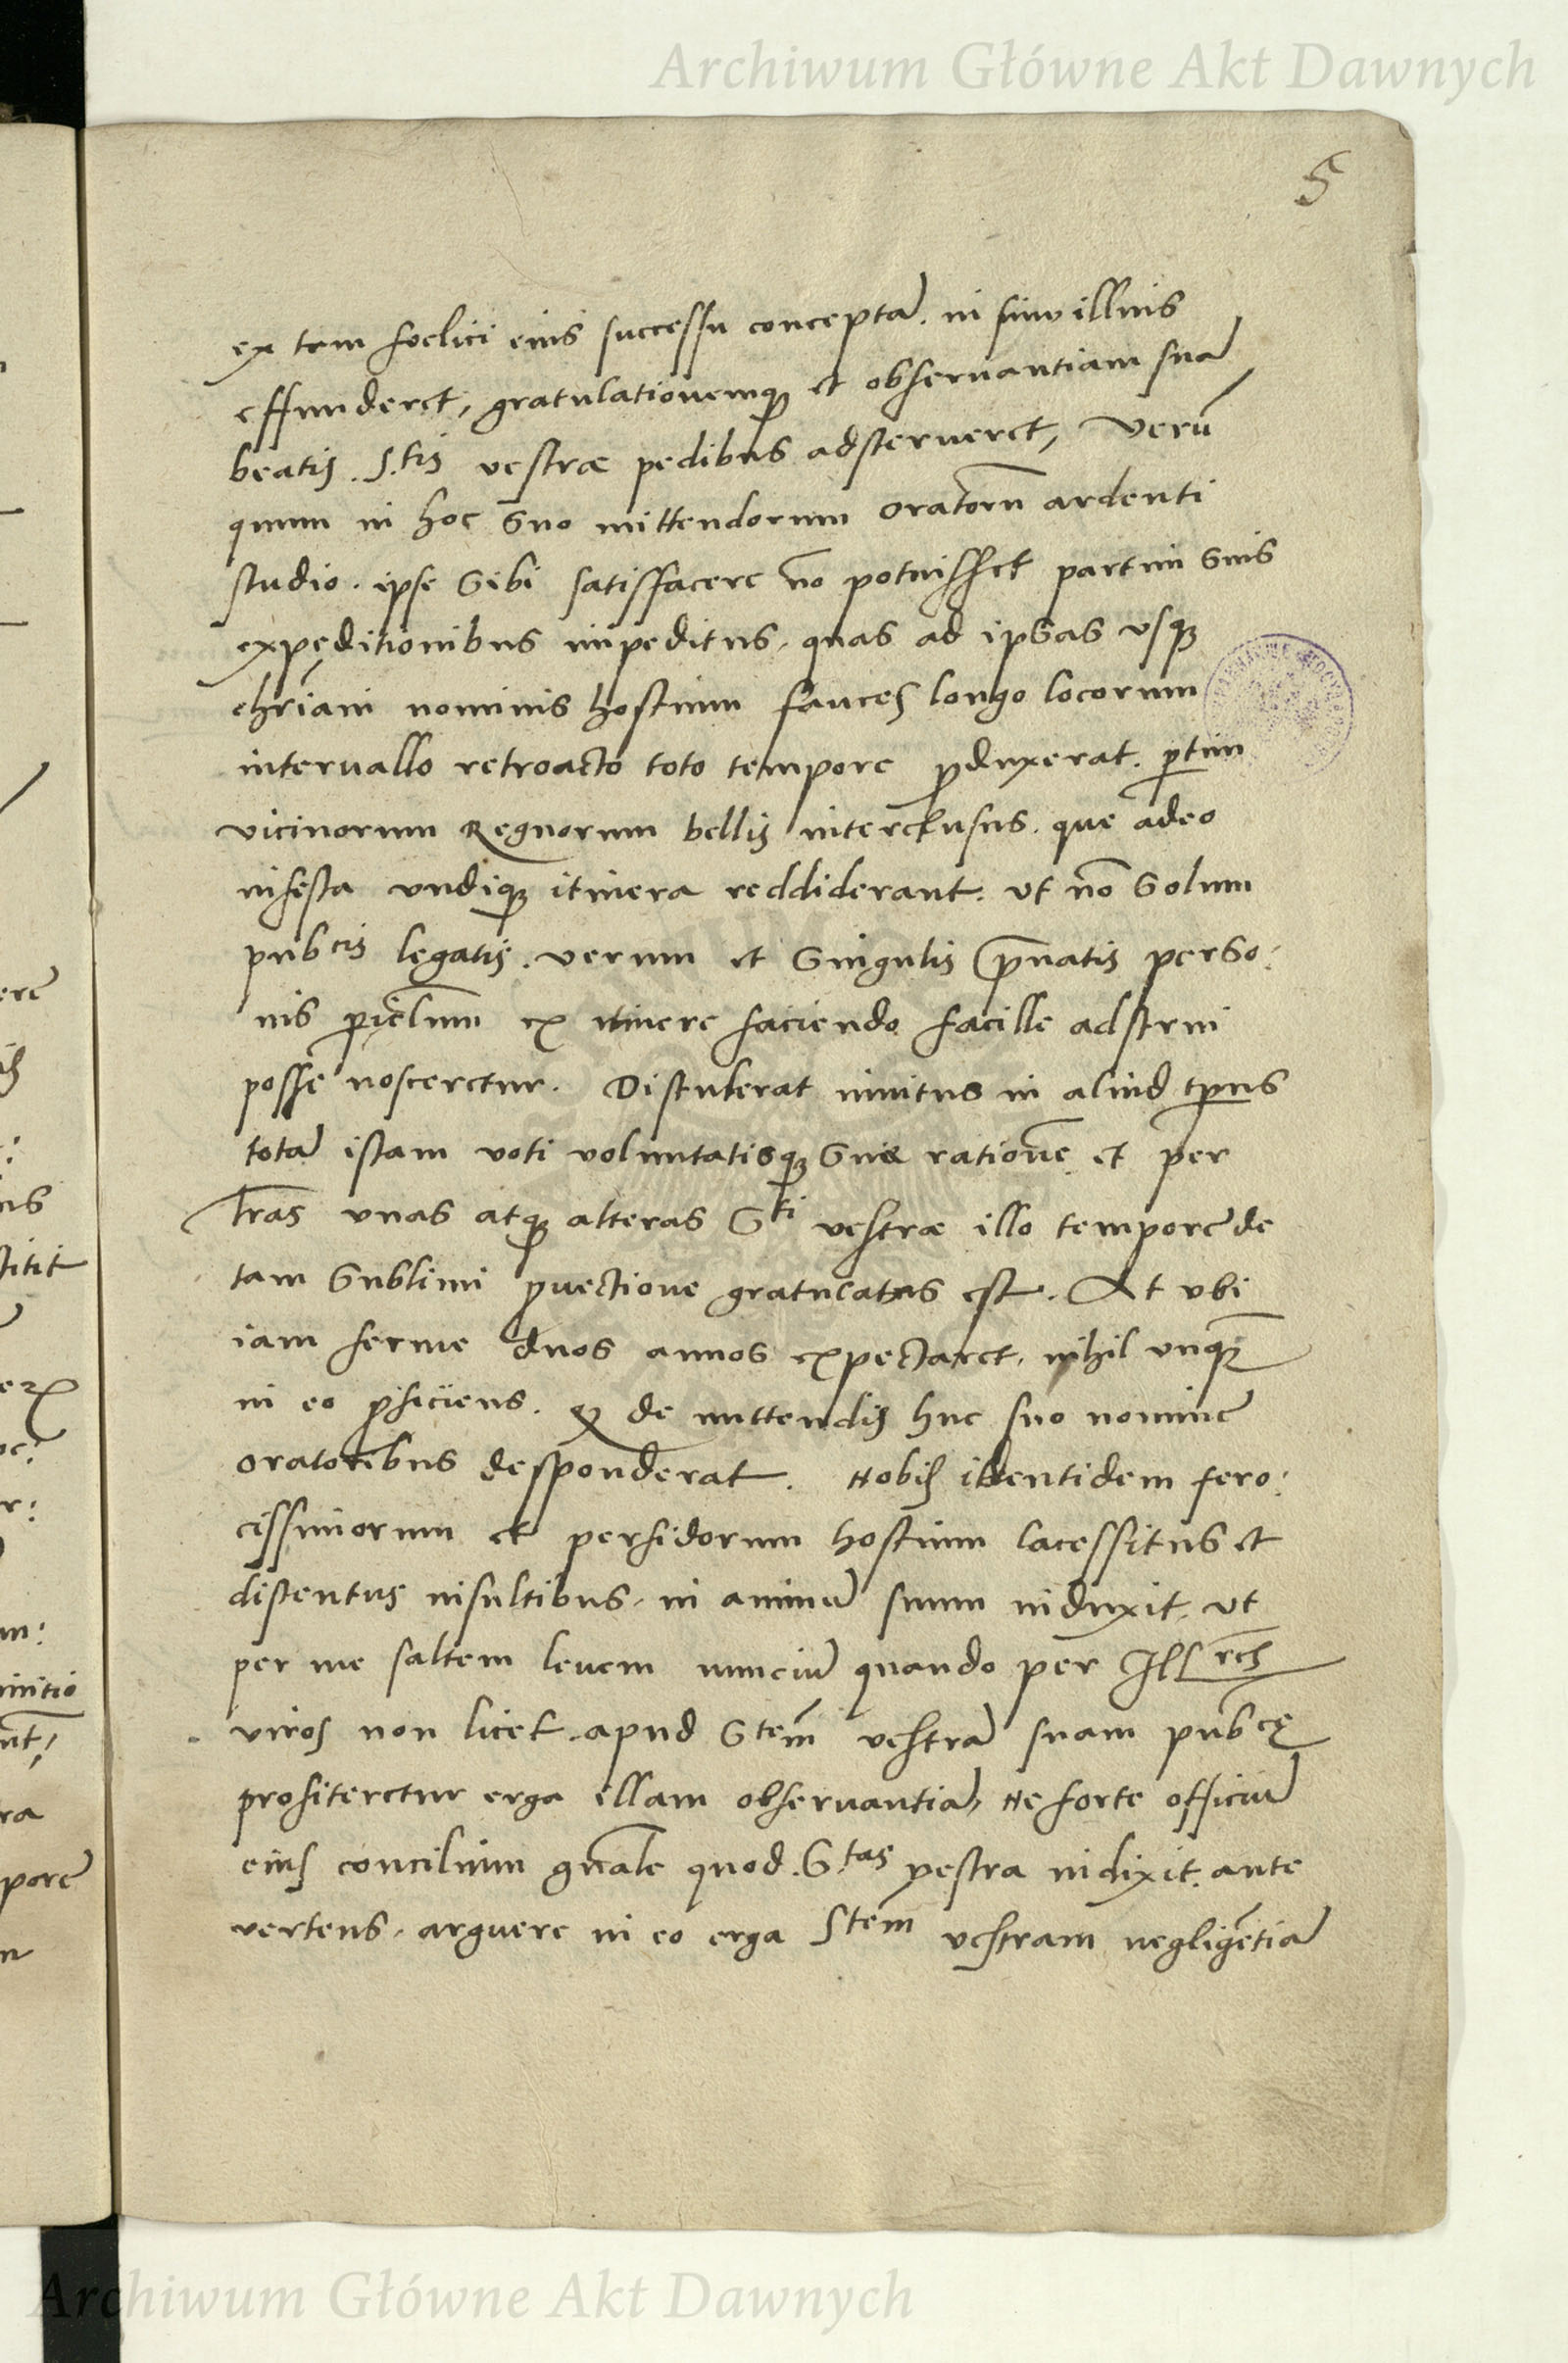 Archiwum Główne Akt Dawnych
5
ex tam foelici eius successu conceptā. in sinu illius
effunderet, gratulationemqꝫ et obseruantiam suā
beatis. S.tis vestræ pedibus adsterneret, Verū
quum in hoc suo mittendorum oratorū ardenti
studio. ipse sibi satisfacere nō potuisset partim suis
expęditionibus impeditus. quas ad ipsas usqꝫ
chr̄iani nominis hostium fauces longo locorum
interuallo retroacto toto tempore ꝓduxerat. ꝑtim
vicinorum Regnorum bellis interclusus. que adeo
infesta vndiqꝫ itinera reddiderant. ut nō solum
pubcis legatis. verum et singulis pruatis perso:
nis periclum ex itinere faciendo facille adstrui
posse nosceretur. Distulerat inuitus in aliud tp̄us
totā istam voti voluntatisqꝫ suæ rationē et per
lr̄as vnas atqꝫ alteras Sti vestræ illo tempore de
tam sublimi ꝓuectione gratulatus est. At vbi
iam ferme duos annos expectaret, nihil vnqꝫ
in eo ꝓficiens. qꝫ de mittendis huc suo nomine
oratoribus desponderat. Nobis identidem fero:
cissimorum et perfidorum hostium lacessitus et
distentus insultibus. in animū suum induxit. ut
per me saltem leuem nunciū quando per Illres
viros non licet. apud Stem̄ vestrā suam pubcę
profiteretur erga illam obseruantiā, Ne forte officiū
eius concilium gn̄ale quod. S.tas vestra indixit. ante
vertens. arguere in eo erga Stem̄ vestram negligētiā
Archiwum Główne Akt Dawnych